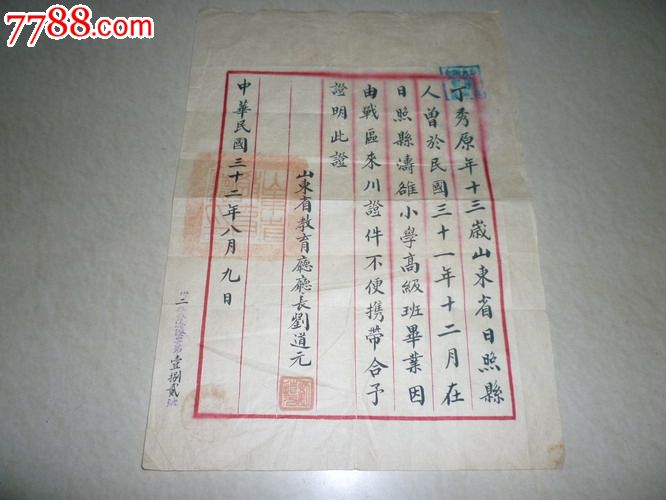 7788.com
丁秀原年十三歲山東省日照縣
人曾於民國三十一年十二月在
日照縣濤雒小學高級班畢業因
由戰區來川證件不便攜帶合予
證明此證
山東省教育廳廳長劉道元
中華民國三十二年八月九日
壹捌貳號